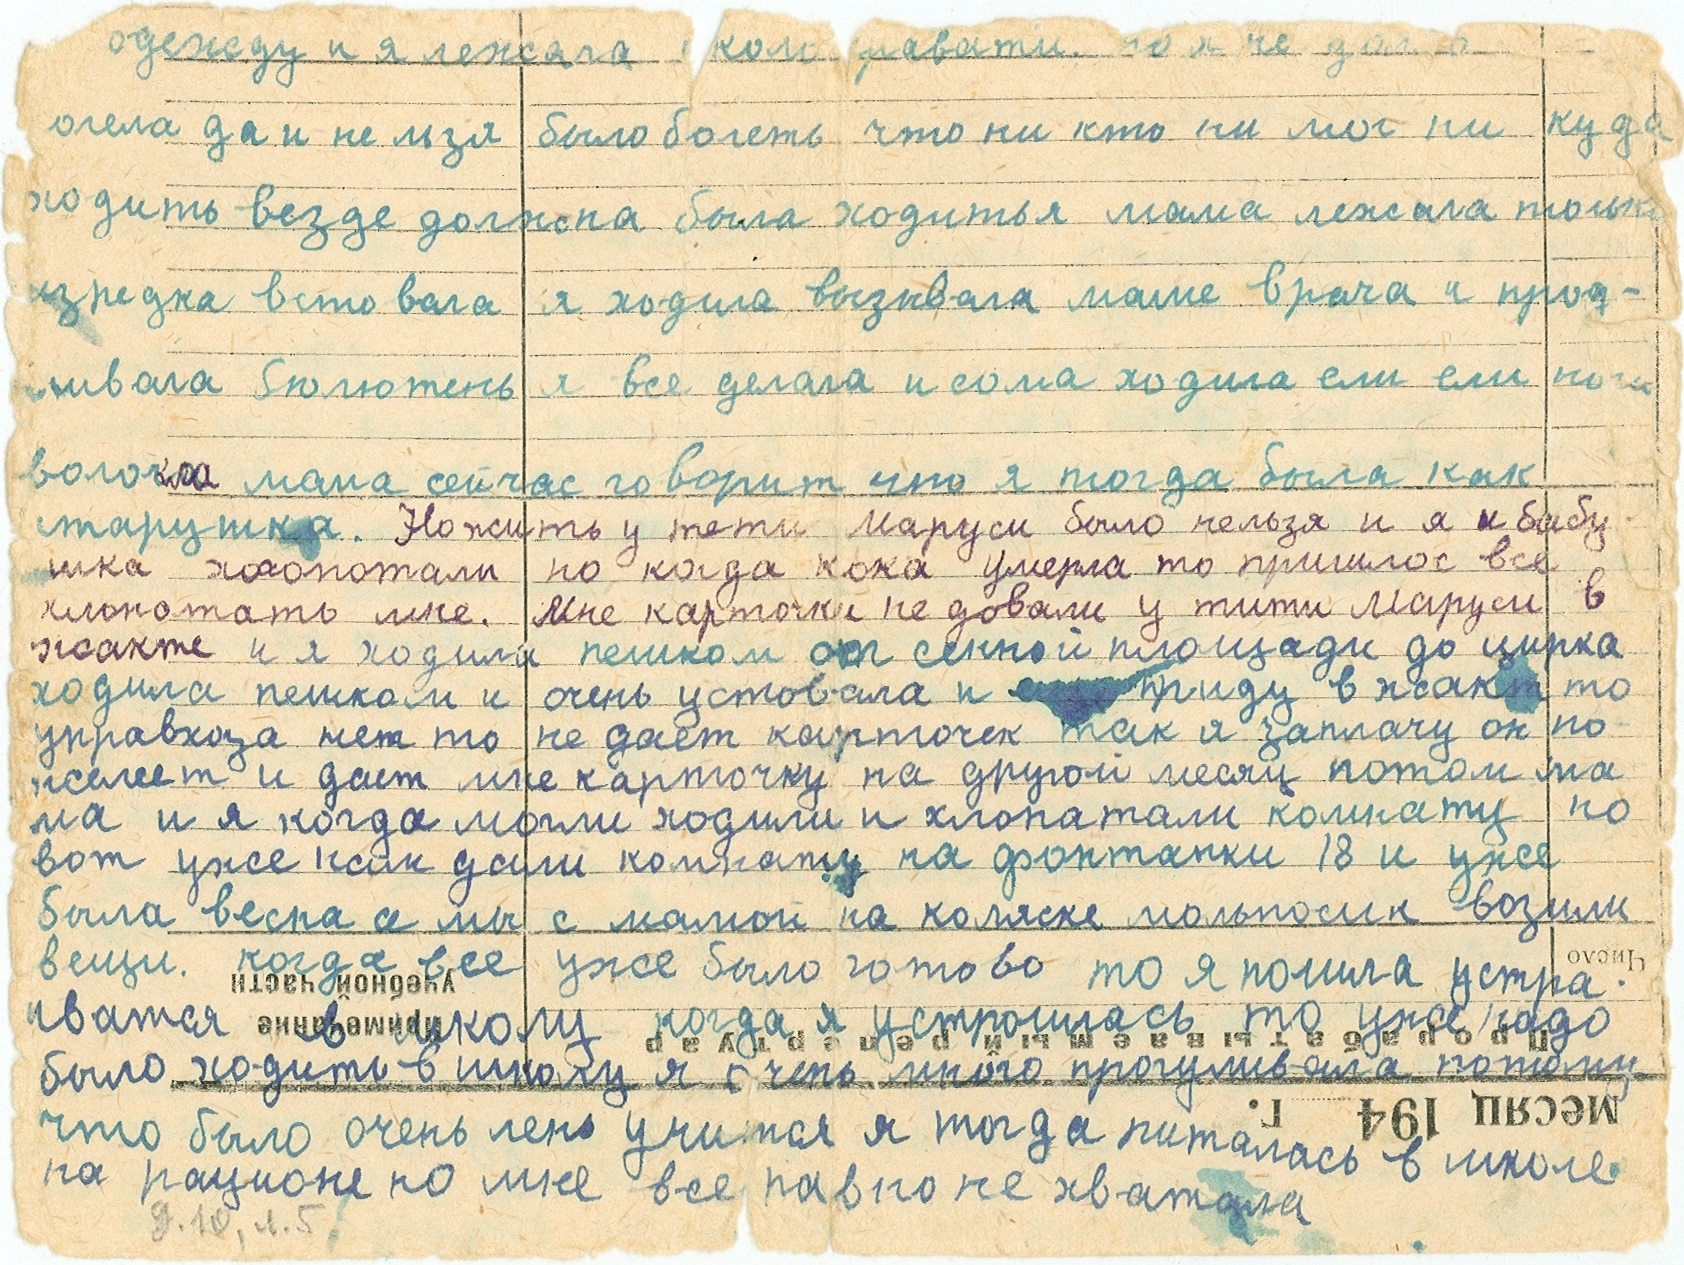 одежду и я лежала около кравати. но я не долго
болела да и не льзя было болеть что ни кто ни мог ни куда
ходить везде должна была ходить я мама лежала только
изредка встовала я ходила вызвала маме врача и прод-
ливала бюлютень я все делала и сома ходила ели ели ноги
волочкла мама сейчас говорит что я тогда была как
старушка. Но жить у тети Маруси было нельзя и я и бабу-
шка хлопотали но когда кока умерла то пришлос все
хлопотать мне. Мне карточки не довали у тити Маруси в
жакте и я ходила пешком от сенной площади до цирка
ходила пешком и очень устовала и приду в жакт то
управхоза нет то не дает карточек так я заплачу он по-
жалеет и даст мне карточку на другой месяц потом ма
ма и я когда могли ходили и хлопатали комнату но
вот уже нам дали комнату на фонтанки 18 и уже
была весна а мы с мамой на коляске мальпосик возили
вещи. когда все уже было готово то я пошла устра-
иватся в школу когда я устроилась то уже надо
было ходить в школу я очень много прогуливала потому
что было очень лень учится я тогда питалась в школе
на рационе но мне все равно не хватала
Д.10, л.5.
Число
учебной части
Примечание
Прорабатываемый репертуар
месяц 194 г.